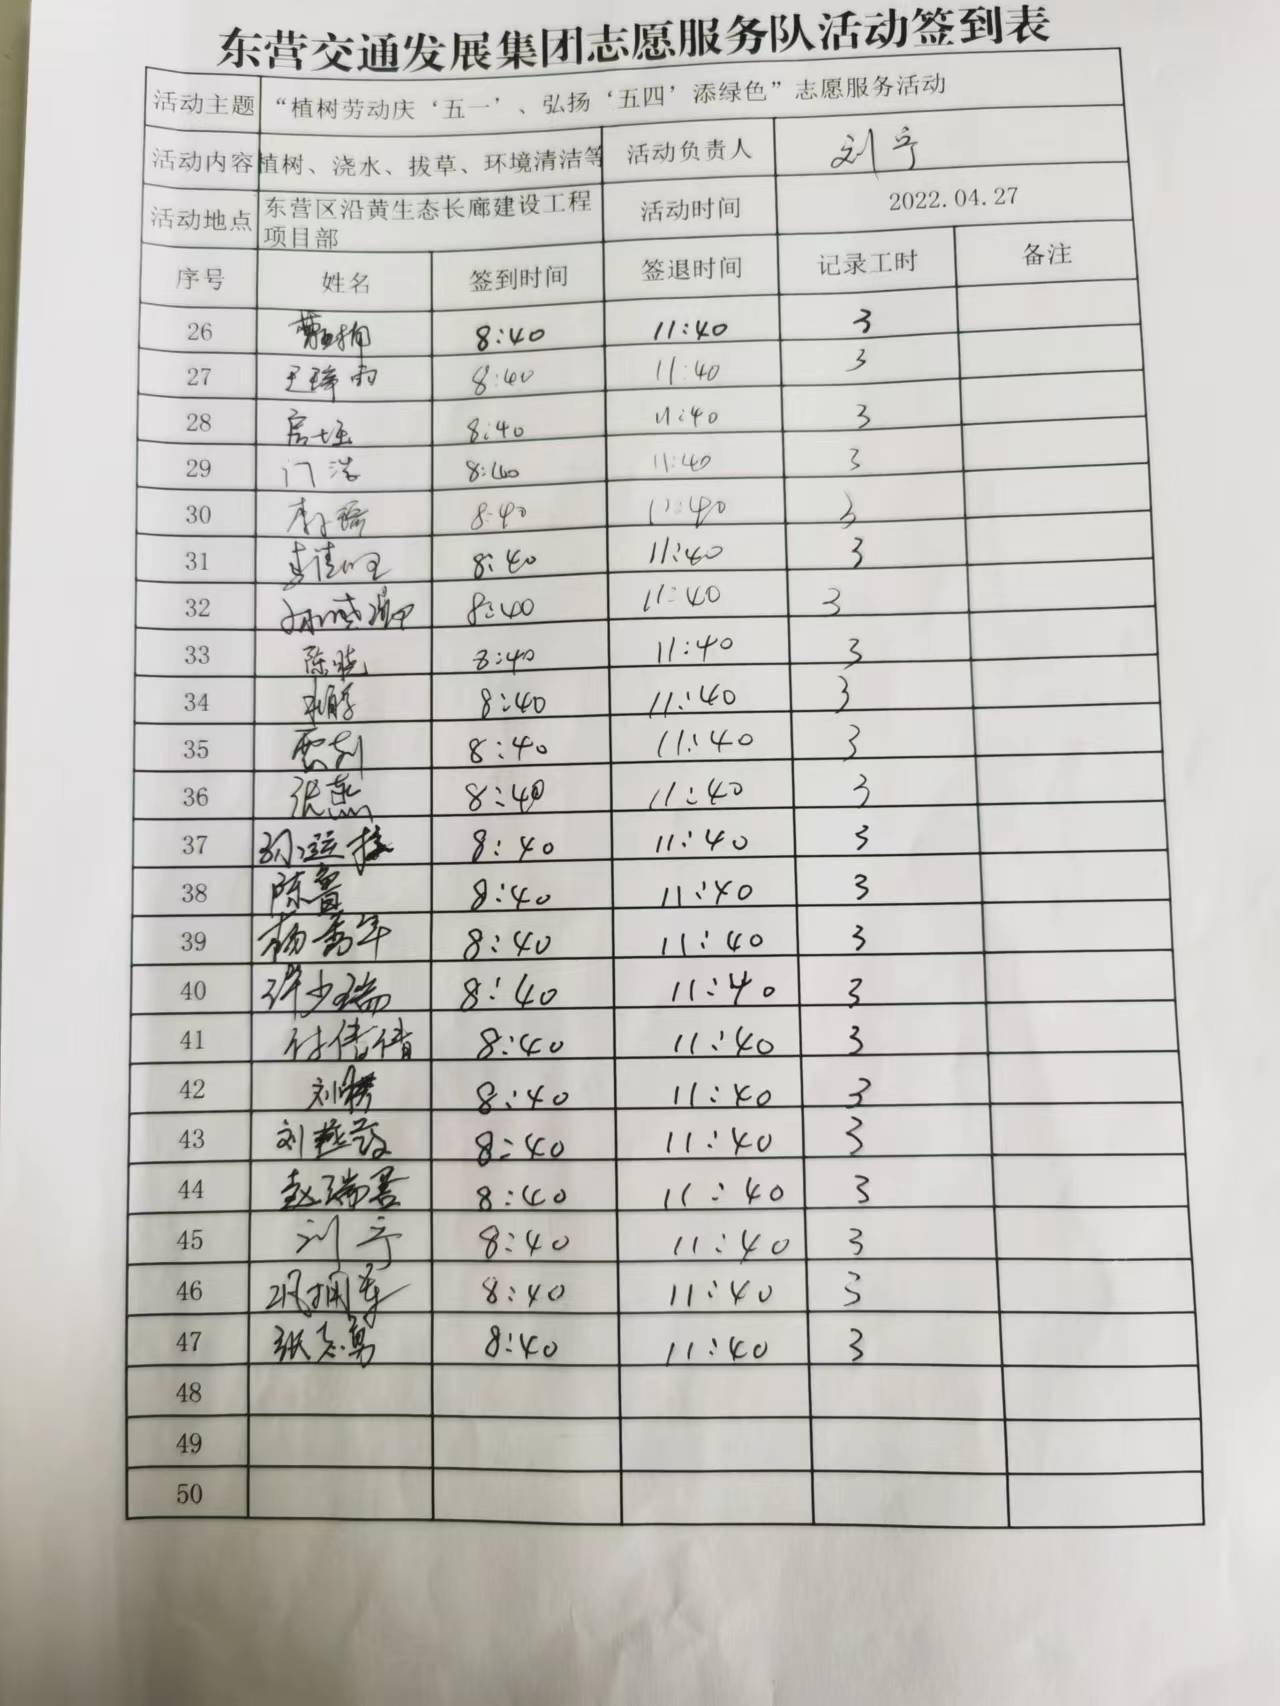 东营交通发展集团志愿服务队活动签到表
活动主题 “植树劳动庆‘五一’、弘扬‘五四’添绿色”志愿服务活动
活动内容 植树、浇水、拔草、环境清洁等 活动负责人 刘宁
活动地点 东营区沿黄生态长廊建设工程项目部 活动时间 2022.04.27
序号 姓名 签到时间 签退时间 记录工时 备注
26 8:40 11:40 3
27 8:40 11:40 3
28 8:40 11:40 3
29 门浩 8:40 11:40 3
30 8:40 11:40 3
31 8:40 11:40 3
32 8:40 11:40 3
33 陈晓 8:40 11:40 3
34 8:40 11:40 3
35 贾剑 8:40 11:40 3
36 张燕 8:40 11:40 3
37 8:40 11:40 3
38 陈鲁 8:40 11:40 3
39 8:40 11:40 3
40 许少瑞 8:40 11:40 3
41 付倩倩 8:40 11:40 3
42 8:40 11:40 3
43 8:40 11:40 3
44 8:40 11:40 3
45 刘宁 8:40 11:40 3
46 巩拥军 8:40 11:40 3
47 张志勇 8:40 11:40 3
48
49
50